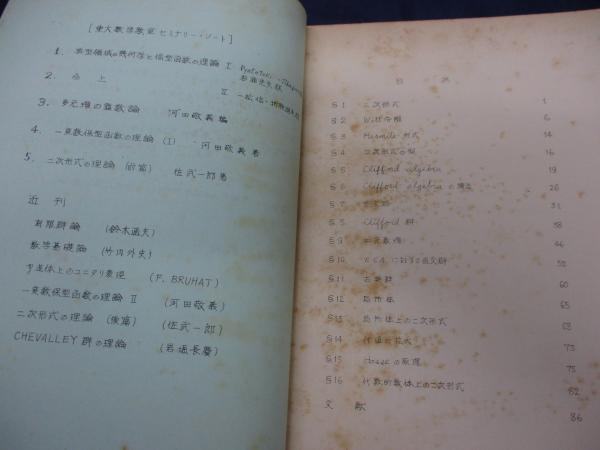 [東大数学教室セミナリー・ノート]
1. 典型領域の幾何学と保型函数の理論 I
2. 同上 II
3. 多元環の整数論 河田敬義編
4. 一変数保型函数の理論 (I) 河田敬義著
5. 二次形式の理論 (前篇) 佐武一郎著
近刊
有限群論 (鈴木通夫)
数学基礎論 (竹内外史)
p進体上のユニタリ表現 (F. BRUHAT)
一変数保型函数の理論 II (河田敬義)
二次形式の理論 (後篇) (佐武一郎)
CHEVALLEY 群の理論 (岩堀長慶)
目次
§1 二次形式 1
§2 Witt 6
§3 Hermite 形式 14
§4 二次形式の 16
§5 Clifford algebra 19
§6 Clifford algebra の構造 26
§7 31
§8 Clifford 群 38
§9 二元 44
§10 における直交群 55
§11 60
§12 65
§13 局所体上の二次形式 68
§14 73
§15 Hasse の原理 75
§16 代数的数体上の二次形式 82
文献 86